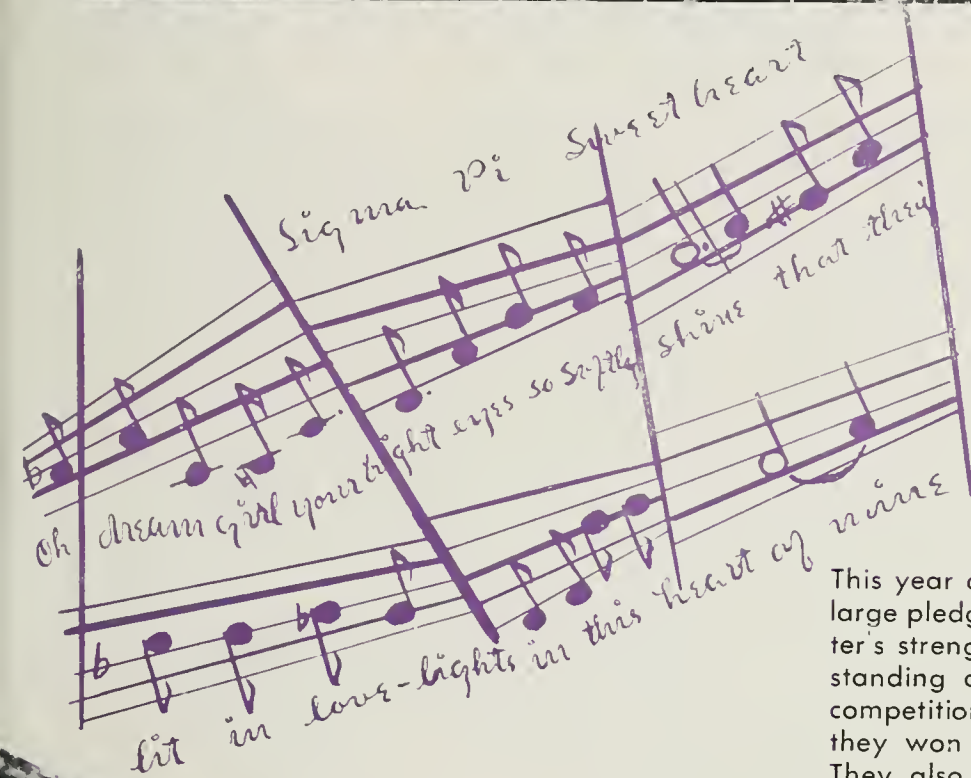 Sigma Pi Sweetheart
Oh dream girl your bright eyes so softly shine that they
lit in love-lights in this heart of mine
This year
large pledg
ter's streng
standing
competition
they won
They also